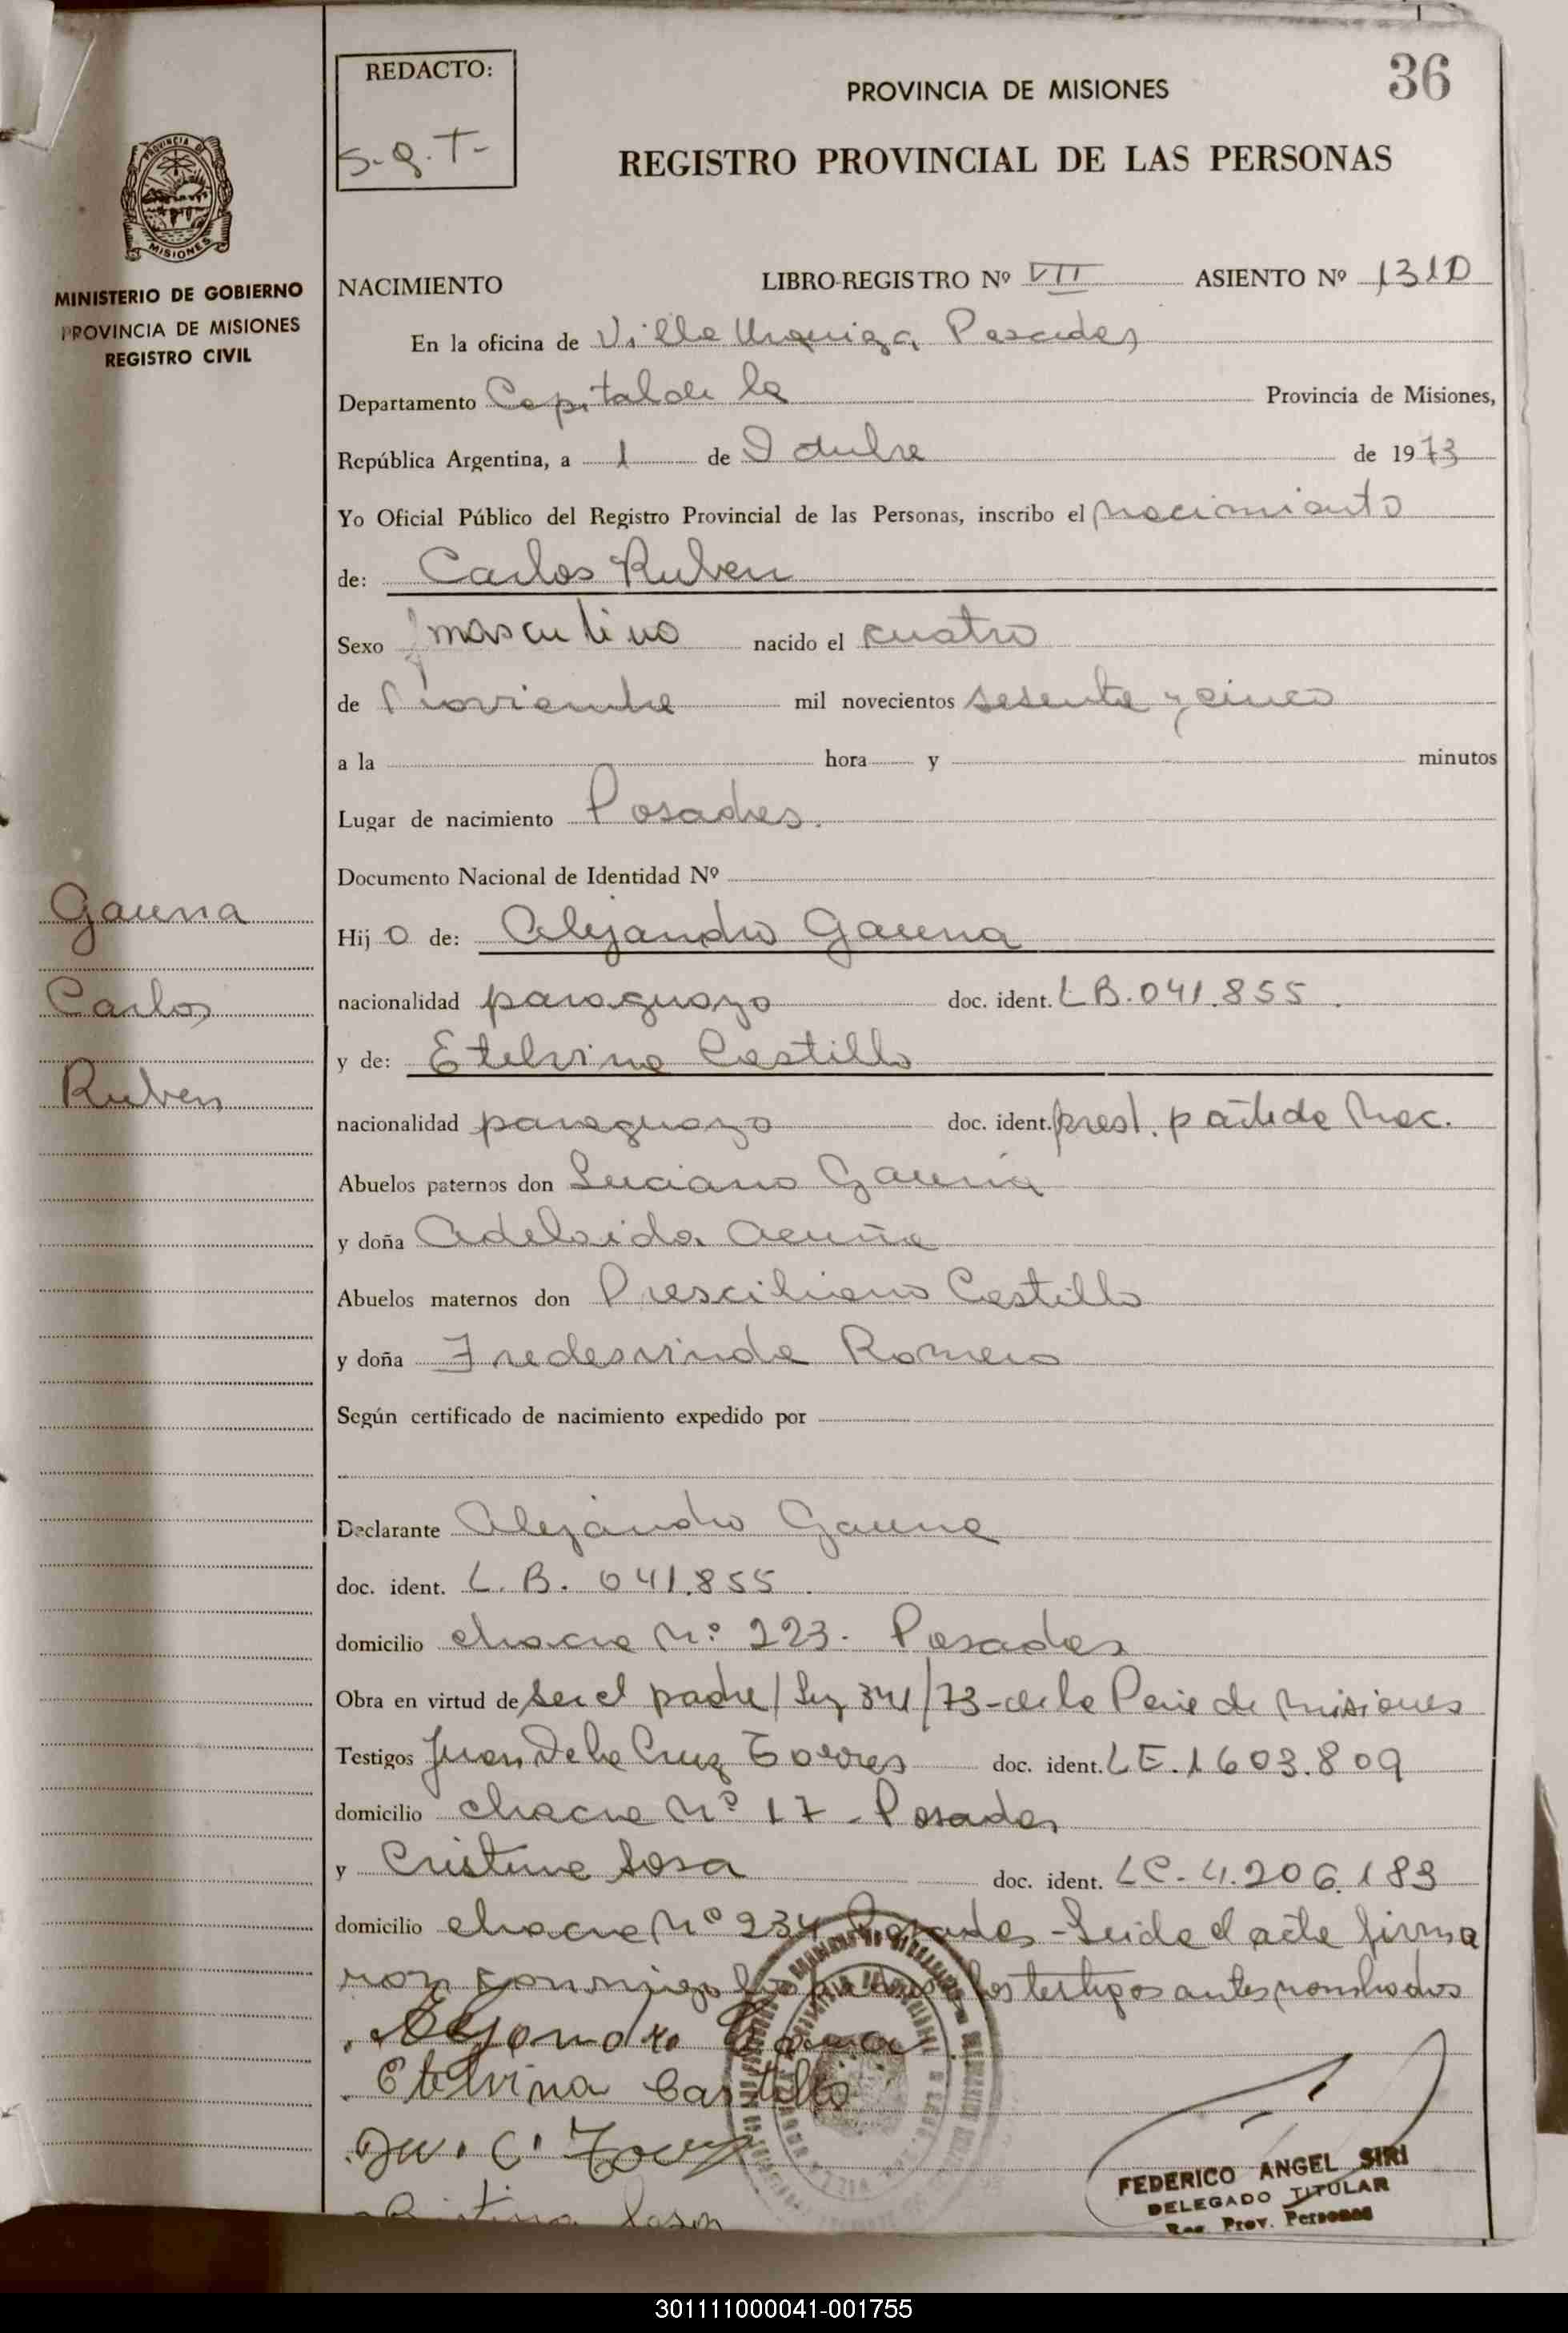 REDACTO:
S.Q.T-
36
PROVINCIA DE MISIONES
REGISTRO PROVINCIAL DE LAS PERSONAS
PROVINCIA DE
MISIONES
MINISTERIO DE GOBIERNO
PROVINCIA DE MISIONES
REGISTRO CIVIL
NACIMIENTO LIBRO-REGISTRO Nº VII ASIENTO Nº 1310
En la oficina de Villa Urquiza, Posadas
Departamento Capital de la Provincia de Misiones,
República Argentina, a 1 de Octubre de 1973
Yo Oficial Público del Registro Provincial de las Personas, inscribo el nacimiento
de: Carlos Ruben
Sexo masculino nacido el cuatro
de Noviembre mil novecientos sesenta y cinco
a la hora y minutos
Lugar de nacimiento Posadas.
Documento Nacional de Identidad Nº
Gauna
Carlos
Ruben
Hijo de: Alejandro Gauna
nacionalidad paraguayo doc. ident. LB.041.855.
y de: Etelvina Castillo
nacionalidad paraguayo doc. ident. prest. partida Nac.
Abuelos paternos don Luciano Gauna
y doña Adelaida Acuña
Abuelos maternos don Presciliano Castillo
y doña Fredesvinda Romero
Según certificado de nacimiento expedido por
Declarante Alejandro Gauna
doc. ident. L.B. 041.855.
domicilio chacra Nº 223- Posadas
Obra en virtud de ser el padre/Ley 341/73-de la Pcia de Misiones
Testigos Juan De la Cruz Torres doc. ident. LE.1603.809
domicilio chacra Nº 17 - Posadas
y Cristina Sosa doc. ident. LC-4.206.183
domicilio chacra Nº 234 Posadas - Leida el acta firma
ron conmigo los testigos antes nombrados
Alejandro Gauna
Etelvina Castillo
Ju. C. Torres
Cristina Sosa
FEDERICO ANGEL SIRI
DELEGADO TITULAR
Reg. Prov. Personas
301111000041-001755